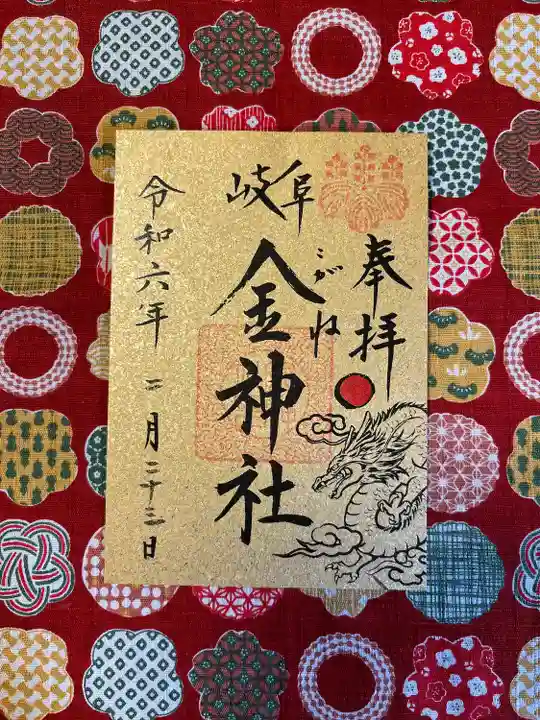 奉拝
岐阜
こがね
金神社
令和六年 二月二十三日